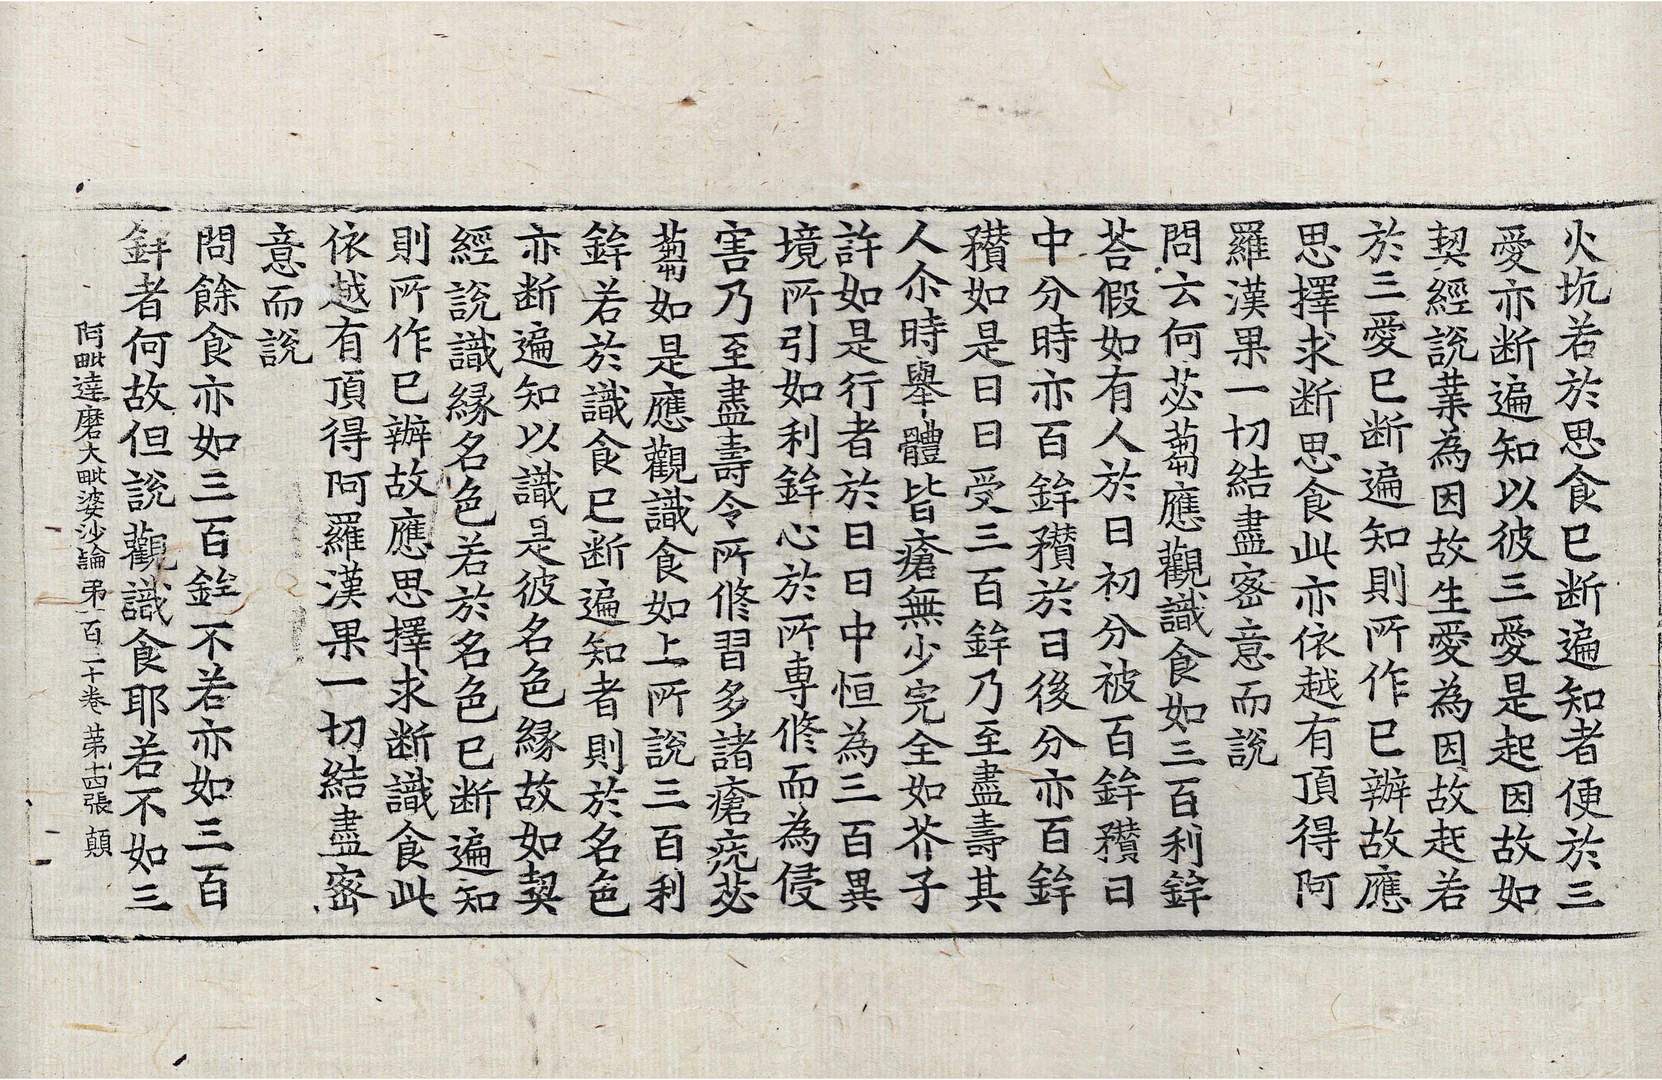 火坑若於思食已断遍知者便於三
愛亦断遍知以彼三愛是起因故如
契經說業為因故生愛為因故起若
於三愛已断遍知則所作已辦故應
思擇求断思食此亦依越有頂得阿
羅漢果一切結盡密意而說
問云何苾蒭應觀識食如三百利鉾
荅假如有人於日初分被百鉾穳日
中分時亦百鉾穳於日後分亦百鉾
穳如是日日受三百鉾乃至盡壽其
人尒時舉體皆瘡無少完全如芥子
許如是行者於日日中恒為三百異
境所引如利鉾心於所専修而為侵
害乃至盡壽令所修習多諸瘡疣苾
蒭如是應觀識食如上所說三百利
鉾若於識食已断遍知者則於名色
亦断遍知以識是彼名色緣故如契
經說識緣名色若於名色已断遍知
則所作已辦故應思擇求断識食此
依越有頂得阿羅漢果一切結盡密
意而說
問餘食亦如三百鉾不若亦如三百
鉾者何故但說觀識食耶若不如三
阿毗達磨大毗婆沙論 苐一百三十卷 苐十四張 顛